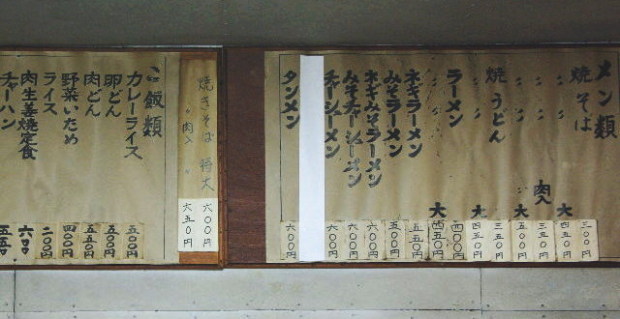 メン類
焼そば 三〇〇円
〃 大 四五〇円
〃 肉入 三五〇円
〃 〃 大 五〇〇円
焼うどん 三五〇円
〃 大 四五〇円
ラーメン 四〇〇円
〃 大 四五〇円
ネギラーメン 五五〇円
みそラーメン 五〇〇円
ネギみそラーメン 六〇〇円
みそチャーシューメン 六〇〇円
チャーシューメン 六〇〇円
タンメン 六〇〇円
焼きそば 特大 六〇〇円
〃 肉入 〃 六五〇円
ご飯類
カレーライス 五〇〇円
卵どん 五〇〇円
肉どん 五五〇円
野菜いため 四〇〇円
ライス 二〇〇円
肉生姜焼定食 六〇〇円
チャーハン